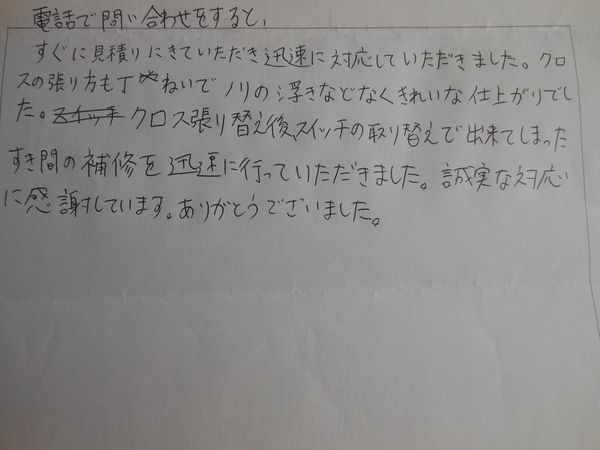 電話で問い合わせをすると、
すぐに見積りにきていただき迅速に対応していただきました。クロ
スの張り方も丁ねいでノリの浮きなどなくきれいな仕上がりでし
た。スイッチ クロス張り替え後、スイッチの取り替えで出来てしまった
すき間の補修を迅速に行っていただきました。誠実な対応
に感謝しています。ありがとうございました。